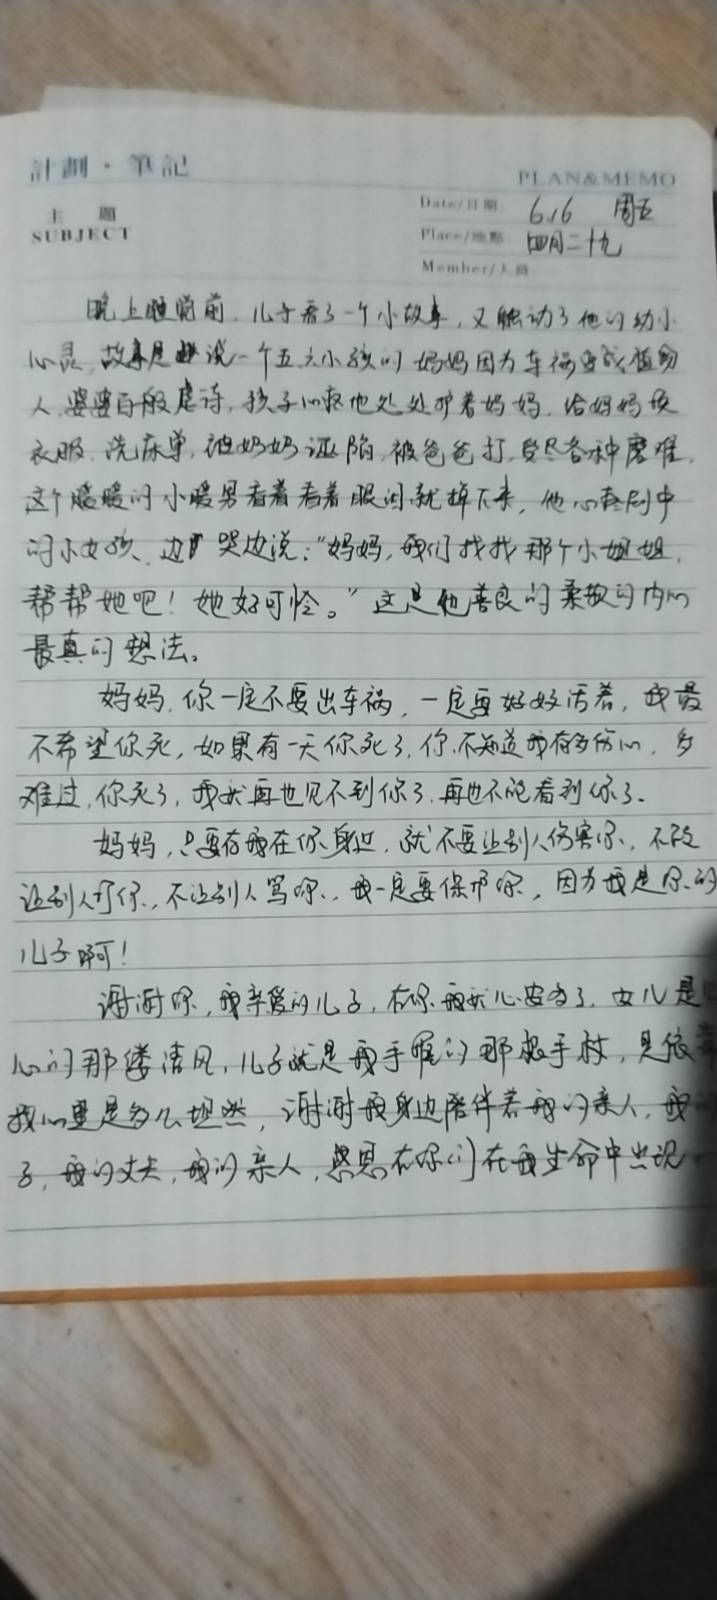 計劃·筆記
PLAN&MEMO
主題
SUBJECT
Date/日期 6.16 周五
Place/地點 四月二十九
Member/人員
晚上睡觉前，儿子看了一个小故事，又触动了他的幼小
心灵，故事是说一个五六小孩的妈妈因为车祸变成植物
人，婆婆百般虐待，孩子心疼地处处护着妈妈，给妈妈换
衣服、洗床单，被奶奶诬陷，被爸爸打，受尽各种磨难，
这个暖暖的小暖男看着看着眼泪就掉下来，他心疼剧中
的小女孩、边哭边说：“妈妈，我们找找那个小姐姐，
帮帮她吧！她好可怜。”这是他善良的柔软的内心
最真的想法。
妈妈，你一定不要出车祸，一定要好好活着，我最
不希望你死，如果有一天你死了，你不知道我有多伤心，多
难过，你死了，我就再也见不到你了，再也不能看到你了。
妈妈，只要有我在你身边，就不要让别人伤害你，不改
让别人打你，不让别人骂你，我一定要保护你，因为我是你的
儿子啊！
谢谢你，我亲爱的儿子，有你我就心安多了，女儿是
心的那缕清风，儿子就是我手握的那根手杖，是依靠
我心里是多么坦然，谢谢我身边陪伴着我的亲人，我
子，我的丈夫，我的亲人，感恩有你们在我生命中出现